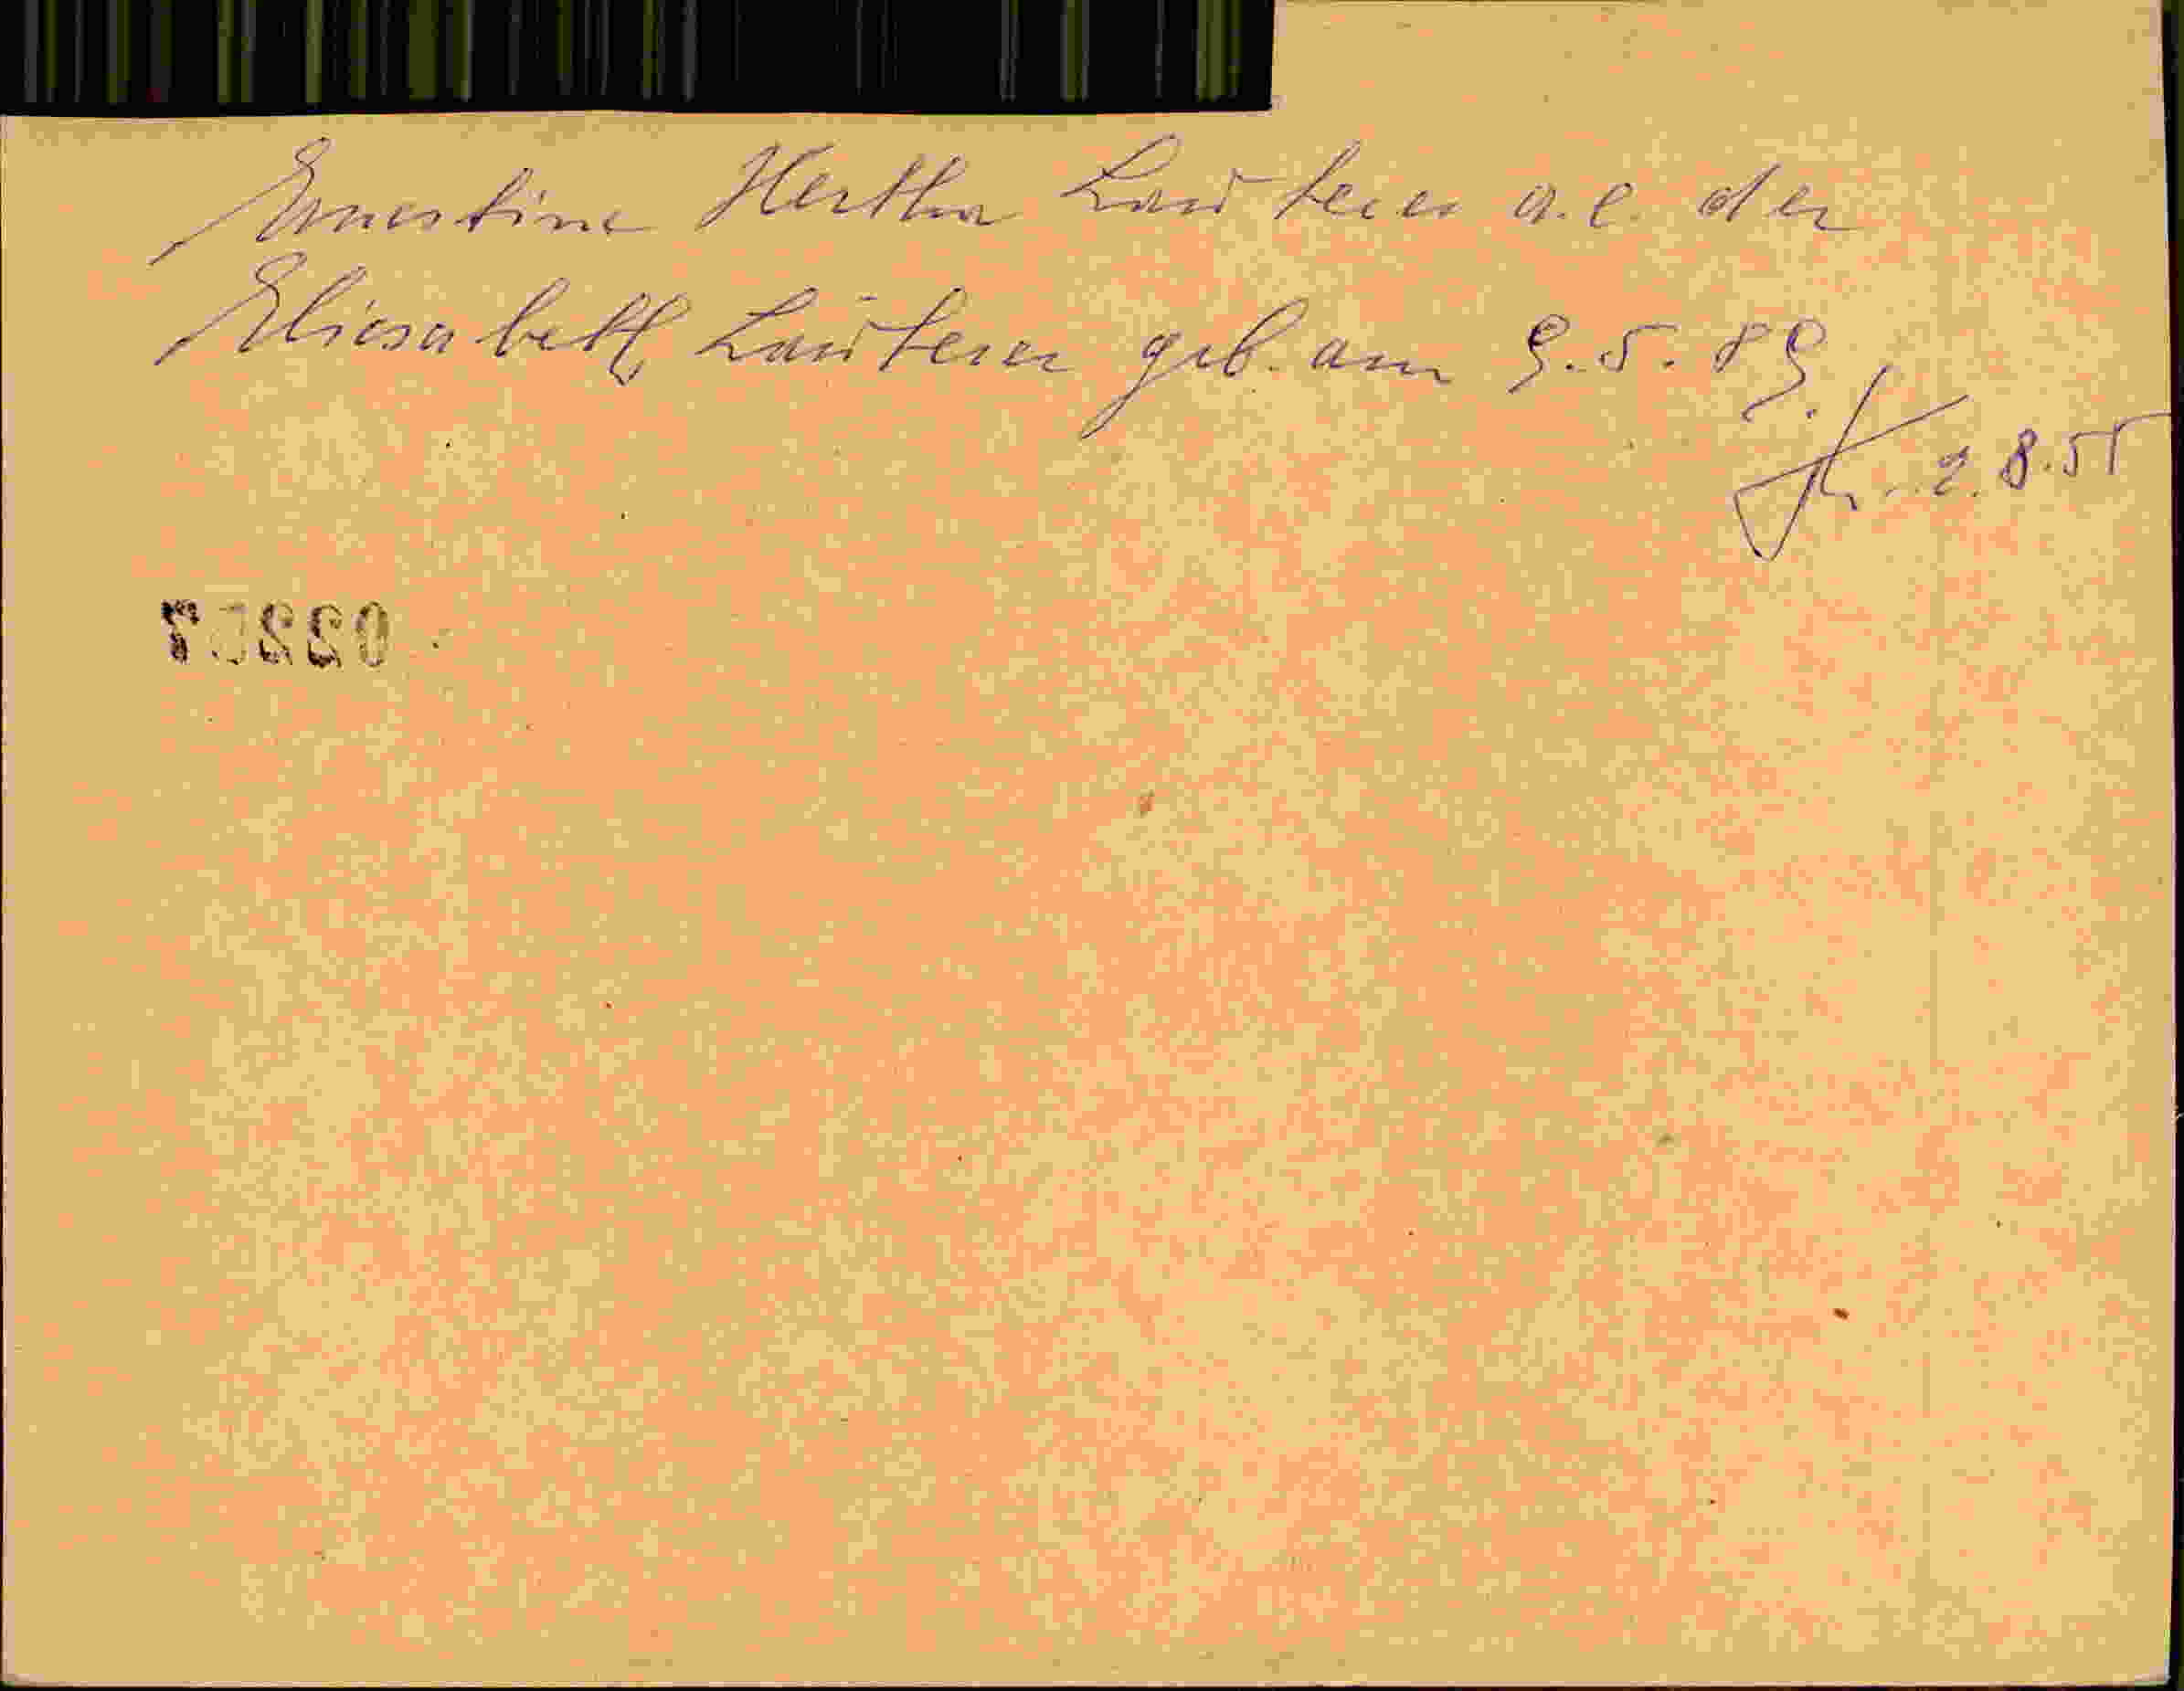 Ernestine Hertha Lauterer a.e. der
Eliesabeth Lauterer geb. am 9.5.89.
2.8.55